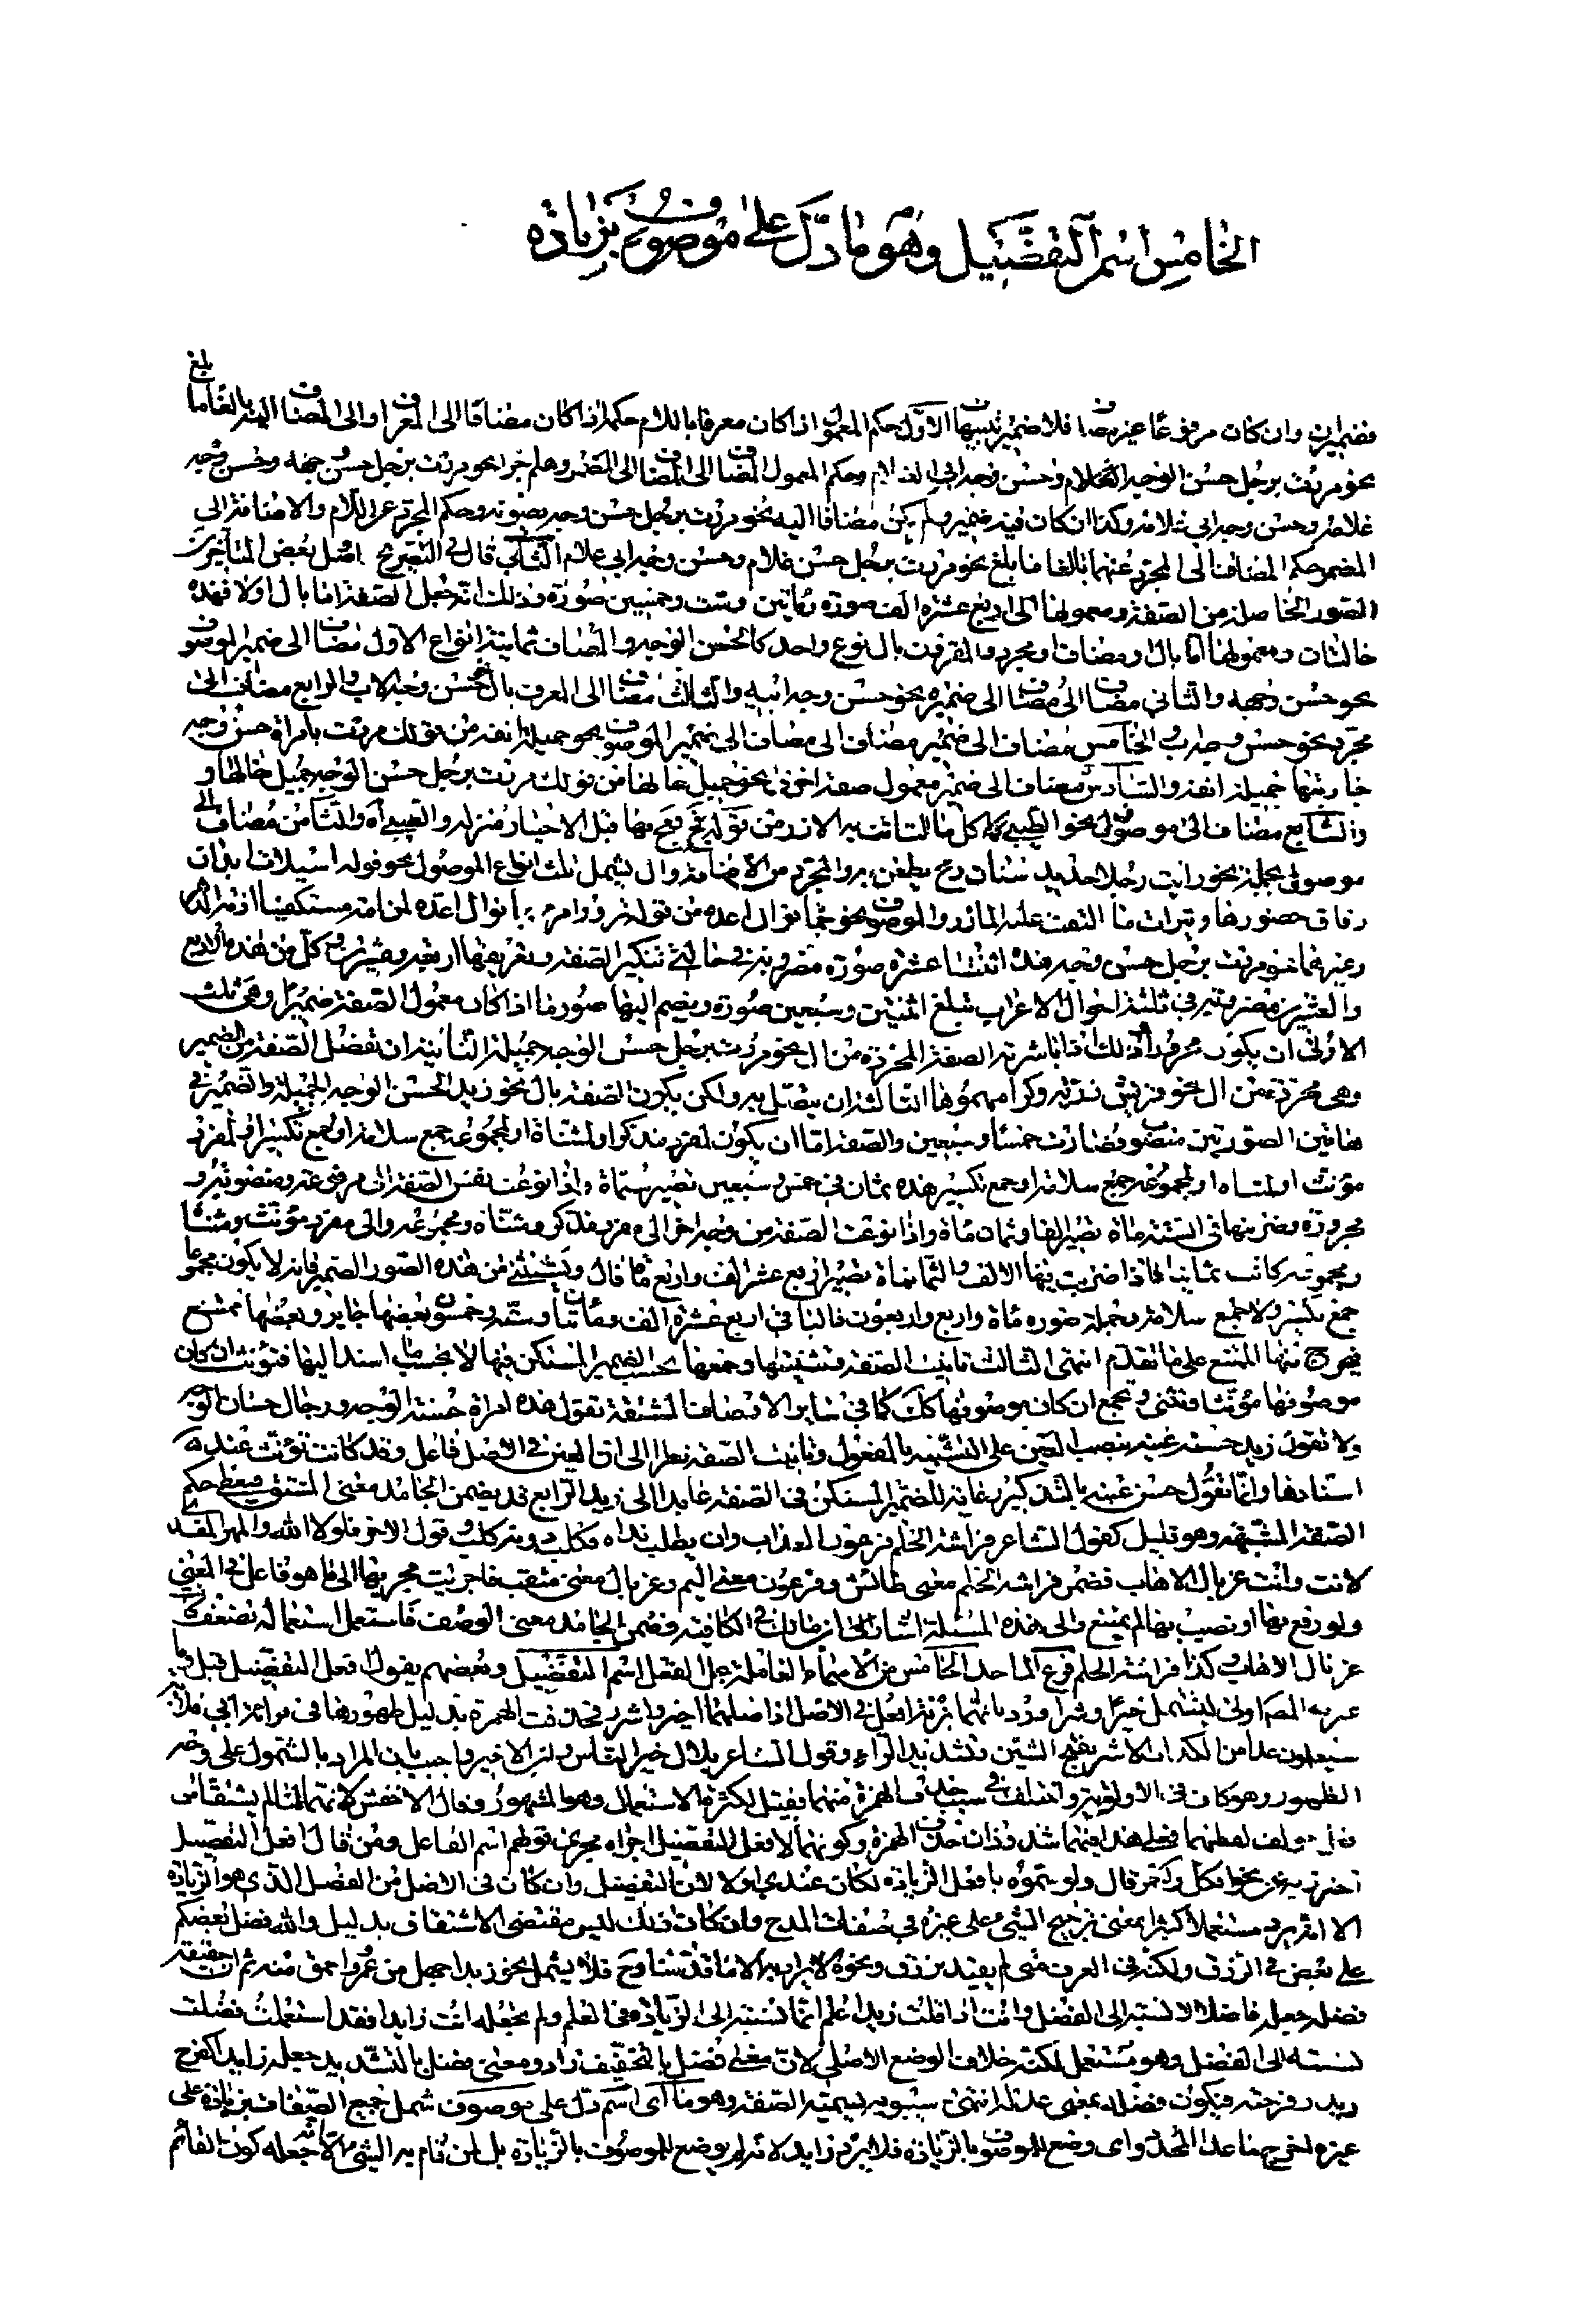 الخامس اسم التفضيل وهو ما دل على موصوف بزيادة
بلغ
فضميران وان كان مرفوعا غير فلا ضمير تنبيها الاول حكم المعمول اذا كان معرفا باللام حكمه اذا كان مضافا الى المعرف او الى المضاف اليه بالغا ما
نحو مررت برجل حسن الوجه وحسن وجه ابي الغلام وحكم المعمول المضاف الى المضاف الى الضمير وهلم جرا نحو مررت برجل حسن وجهه وحسن وجه
غلامه وحسن وجه ابي غلامه وكذا ان كان فيه ضمير ولم يكن مضافا اليه نحو مررت برجل حسن وجه يصونه وحكم المجرد عن اللام والاضافة الى
المضمر حكم المضاف الى المجرد عنهما بالغا ما بلغ نحو مررت برجل حسن غلام وحسن وجه ابي غلام الثاني قال في التصريح اوصل بعض المتأخرين
الصور الحاصلة من الصفة ومعمولها الى اربع عشرة الف صورة ومائتين وست وخمسين صورة وذلك انه جعل الصفة اما بال اولا فهذه
حالتان ومعمولها اما بال او مضاف او مجرد والمقرون بال نوع واحد كالحسن الوجه والمضاف ثمانية انواع الاول مضاف الى ضمير الموصوف
نحو حسن وجهه والثاني مضاف الى مضاف الى ضميره نحو حسن وجه ابيه والثالث مضاف الى المعرف بال نحو حسن وجه الاب والرابع مضاف الى
مجرد نحو حسن وجه اب والخامس مضاف الى ضمير مضاف الى مضاف الى ضمير الموصوف نحو جميلة انفه من قولك مررت بامراة حسن وجه
جاريتها جميلة انفه والسادس مضاف الى ضمير معمول صفة اخرى نحو جميل خالها من قولك مررت برجل حسن الوجنة جميل خالها و
والسابع مضاف الى موصول نحو الطيبي كل ما التاثت به الازر من قوله
موصوف بجملة نحو رايت رجلا حديد سنان رمح يطعن به والمجرد من الاضافة وال يشمل ثلث انواع الموصول نحو قوله اسيلات ابدان
دقاق خصورها وثيرات ما التفت عليه المآزر والموصوف نحو جما نوال اعده من قوله ازور امرءا جما نوال اعده لمن امه مستكفيا ازمة الدهر
وغيرهما نحو مررت برجل حسن وجه فهذه اثنتا عشرة صورة مضروبة في حالتي تنكير الصفة وتعريفها اربعة وعشرين وكل من هذه الاربع
والعشرين مضروبة في ثلثة احوال الاعراب تبلغ اثنتين وسبعين صورة ويضم اليها صور ما اذا كان معمول الصفة ضميرا وهي ثلث
الاولى ان يكون مجرورا وذلك فيما باشرته الصفة المجردة من ال نحو مررت برجل حسن الوجه جميله الثانية ان تفصل الصفة من الضمير
وهي مجردة من ال نحو قريش ذرية وكرامهموها الثالثة ان يتصل به ولكن يكون الصفة بال نحو زيد الحسن الوجه الجميله والضمير في
هاتين الصورتين منصوب فصارت خمسا وسبعين والصفة اما ان يكون لمفرد مذكر او لمثناه او لمجموعه جمع سلامة او جمع تكسير او لمفرد
مؤنث او لمثناه او لمجموعه جمع سلامة او جمع تكسير هذه ثمان في خمس وسبعين تصير ستماة واذا نوعت نفس الصفة الى مرفوعة ومنصوبة و
مجرورة وضربتها في الستماة تصير الفا وثمان ماة واذا نوعت الصفة من وجه اخر الى مفرد مذكر ومثناه ومجموعه والى مفرد مؤنث ومثناه
ومجموعه كانت ثمانيا فاذا ضربت فيها الالف والثمانماة تصير اربع عشر الف واربع ماة قال ويستثنى من هذه الصور الضمير فانه لا يكون مجموعا
جمع تكسير ولا جمع سلامة وجملة صوره ماة واربع واربعون فالباقي اربع عشرة الف ومائتان وستة وخمسون بعضها جايز وبعضها ممتنع
فيخرج منها الممتنع على ما تقدم انتهى الثالث تانيث الصفة وتثنيتها وجمعها بحسب الضمير المستكن فيها لا بحسب ما اسند اليها فتؤنث ان كان
موصوفها مؤنثا وتثنى وتجمع ان كان موصوفها كذلك كما في سائر الاوصاف المشتقة تقول هذه امراة حسنة الوجه ورجال حسان الوجه
ولا تقول زيد حسنة عينه بنصب العين على التشبيه بالمفعول وتانيث الصفة نظرا الى ان العين في الاصل فاعل وقد كانت تؤنث عند
اسنادها وانما تقول حسن عينه بالتذكير رعاية للضمير المستكن في الصفة عايدا الى زيد الرابع قد يضمن الجامد معنى المشتق فيعطى حكم
الصفة المشبهة وهو قليل كقول الشاعر فراشة الحلم فرعون العذاب وان يطلب نداه فكلب دونه كلب وقول الاخر فلولا الله والمهر المفدى
لابت وانت غربال الاهاب فضمن فراشة الحلم معنى طائش وفرعون معنى اليم وغربال معنى مثقب فاجريت مجريها الى ما هو فاعل في المعنى
ولو رفع بها او نصب بها لم يمتنع والى هذه المسئلة اشار ابن مالك في الكافية وضمن الجامد معنى الوصف فاستعمل استعماله بضعف
غربال الاهاب وكذا فراشة الحلم فرع الماحد الخامس من الاسماء العاملة عمل الفعل اسم التفضيل وبعضهم يقول افعل التفضيل قيل وما
عبر به المص اولى ليشمل خيرا وشرا ورد بانهما بزنة افعل في الاصل اذ اصلهما اخير واشر فحذفت الهمزة بدليل ظهورها في قراءة ابي قلابة
سيعلمون غدا من الكذاب الاشر بفتح الشين وتشديد الراء وقول الشاعر بلال خير الناس وابن الاخير واجيب بان المراد بالشمول على وجه
الظهور وهو كاف في الاولوية واختلف في سبب حذف الهمزة منهما فقيل لكثرة الاستعمال وهو المشهور وقال الاخفش لانهما لما لم يشتقا من
فعل خولف لفظهما فعلى هذا فيهما شذوذان حذف الهمزة وكونهما لا فعل للتفضيل اجراه مجرى قولهم اسم الفاعل ومن قال افعل التفضيل
احترز به عن نحو افكل واحمر قال ولو سموه بافعل الزيادة لكان عندي اولا لان التفضيل وان كان في الاصل من الفضل الذي هو الزيادة
الا انه يرد مستعملا كثيرا بمعنى ترجيح الشيء على غيره في صفات المدح وان كان ذلك ليس مقتضى الاشتقاق بدليل والله فضل بعضكم
على بعض في الرزق ولكنه في العرف متى لم يقيد برزق ونحوه لا يراد به الا ما قد فلا يشمل نحو زيد اجهل من عمرو احمق منه ثم ان حقيقة
فضله جعله فاضلا لا نسبته الى الفضل وانت اذا قلت زيد اعلم انما نسبته الى الزيادة في العلم ولم تجعله انت زايدا فقد استعملت فضلت
لنسبته الى الفضل وهو مستعمل لكنه خلاف الوضع الاصلي لان معنى فضل بالتخفيف زاد ومعنى فضل بالتشديد جعله زايدا كفرح
زيد وفرحته فيكون فضله بمعنى عداه انتهى سيبويه تسميته الصفة وهو ما اى اسم دل على موصوف شمل جميع الصفات بزيادة على
غيره اخرج ما عدا المحدود اى وضع للموصوف بالزيادة فلا يرد زايد لانه لم يوضع للموصوف بالزيادة بل لمن قام به الشيء الا جعله كون القائم